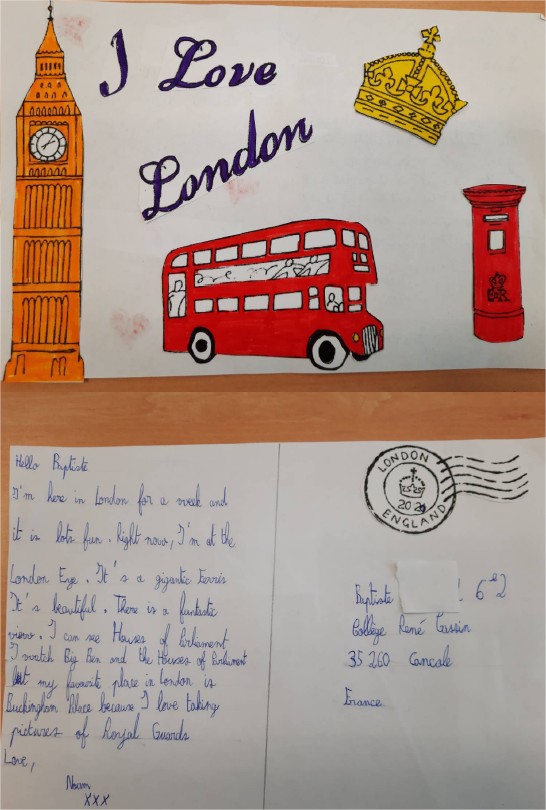 I Love
London
Hello Baptiste
I'm here in London for a week and
it is lots fun. Right now, I'm at the
London Eye. It's a gigantic ferris
It's beautiful. There is a fantastic
view. I can see Houses of Parliament
I watch Big Ben and the Houses of Parliament
but my favourite place in London is
Buckingham Palace because I love taking
pictures of Royal Guards
Love,
Noam
XXX
LONDON
ENGLAND
Baptiste 6e2
Collège René Cassin
35260 Cancale
France